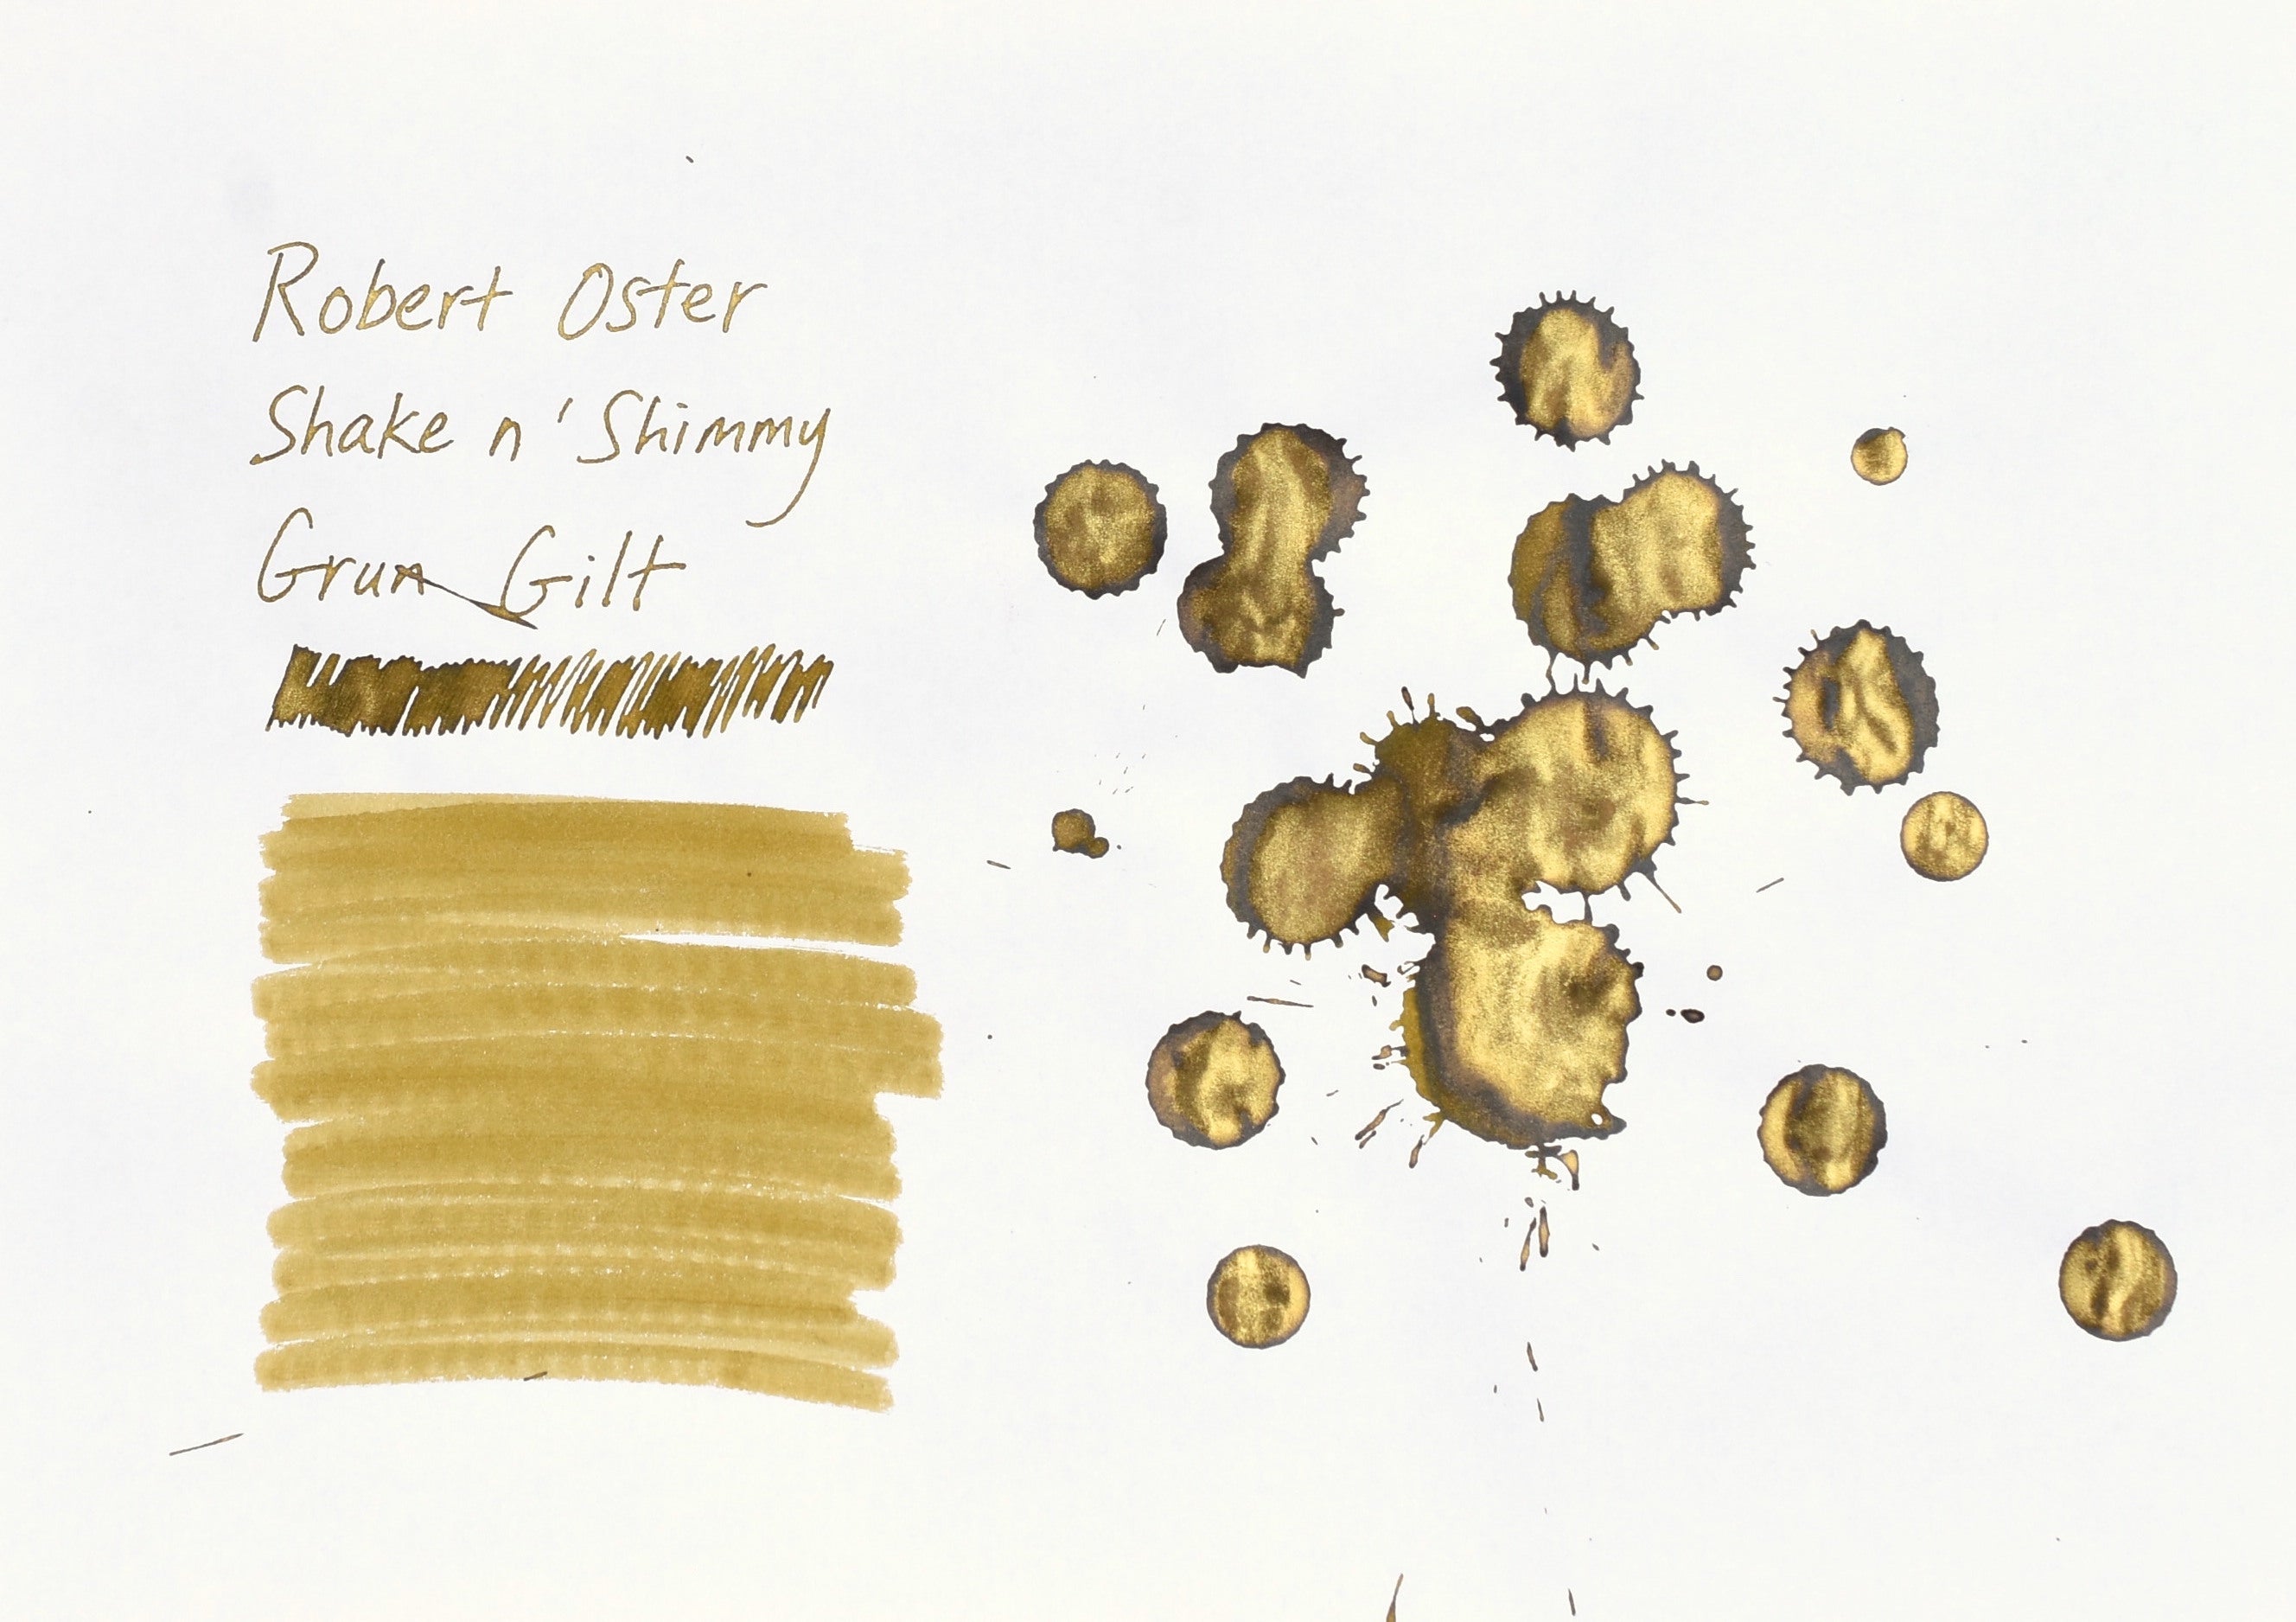 Robert Oster
Shake n' Shimmy
Grun Gilt